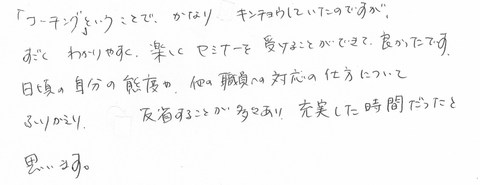 「コーチング」ということで、かなり キンチョウしていたのですが、
すごく わかりやすく、楽しく セミナーを 受けることができて、良かったです。
日頃の自分の態度や、他の職員への対応の仕方について
ふりかえり、 反省することが多々あり、充実した時間だったと
思います。